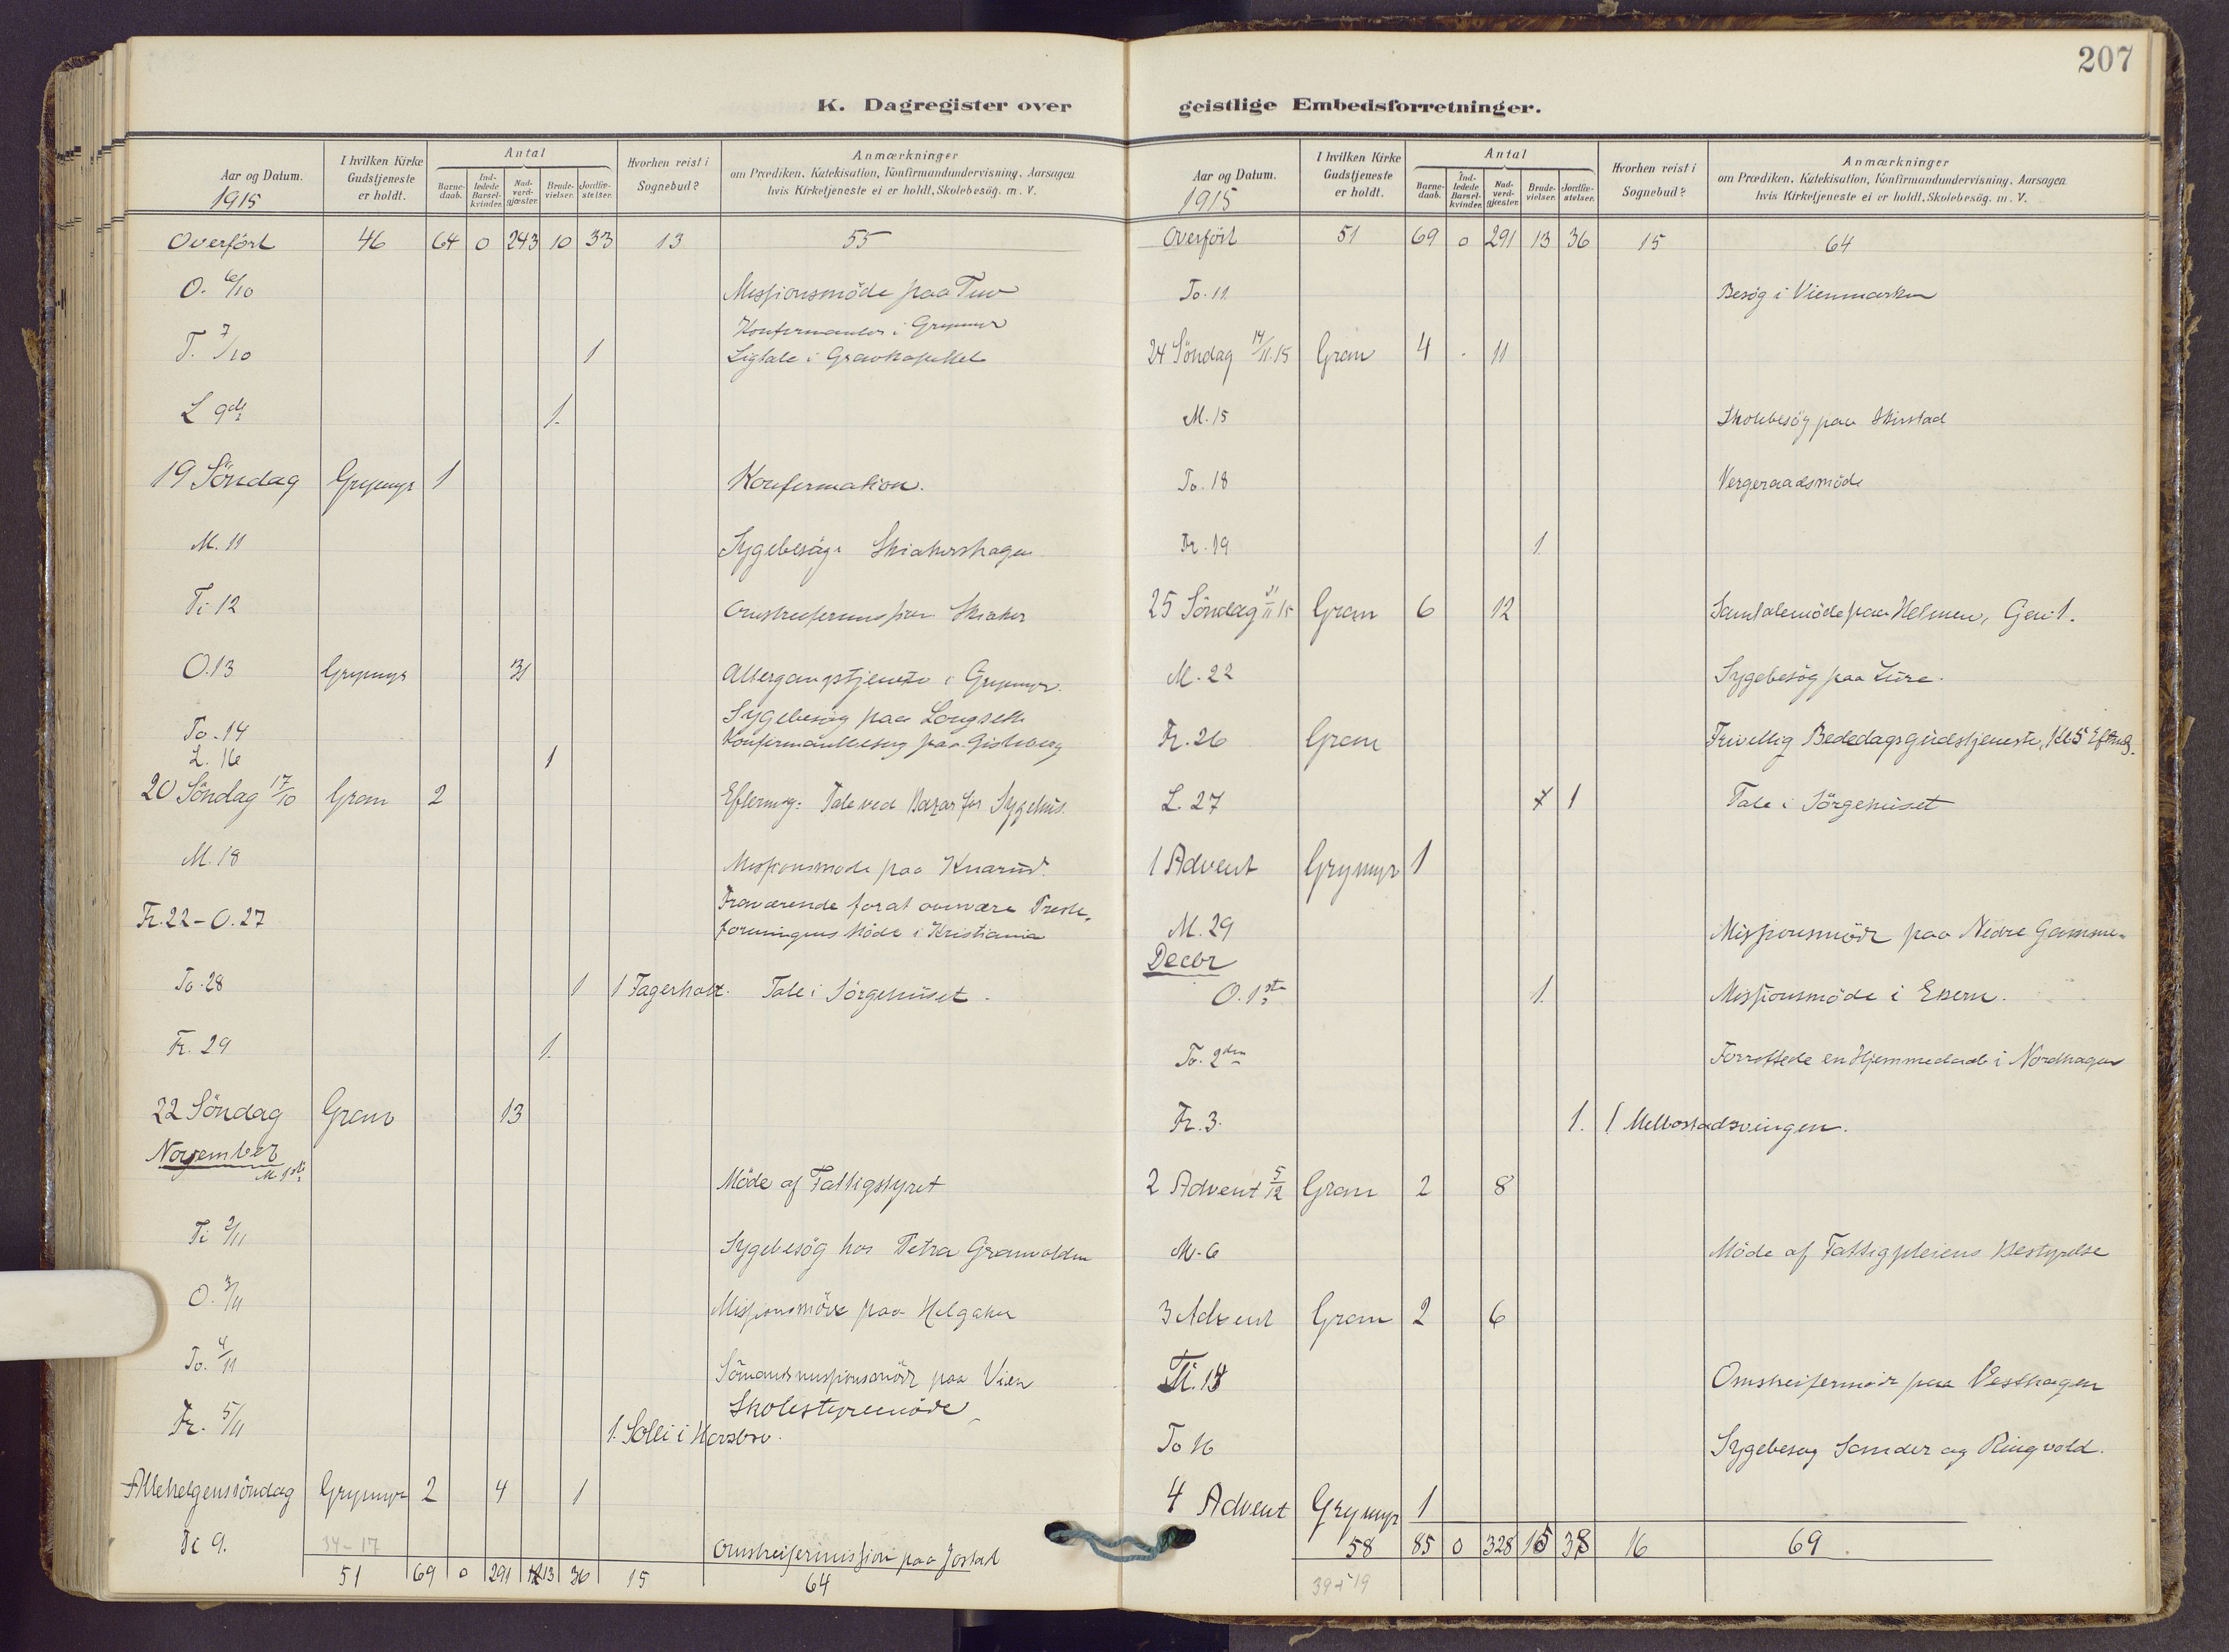 207
K. Dagregister over geistlige Embedsforretninger.
Aar og Datum. I hvilken Kirke Gudstjeneste er holdt. Antal Barnedaab. Indledede Barselkvinder. Nadverdgjæster. Brudevielser. Jordfæstelser. Hvorhen reist i Sognebud? Anmærkninger
om Prædiken. Katekisation, Konfirmandundervisning. Aarsagen
hvis Kirketjeneste ei er holdt. Skolebesög. m. V.
1915
Overfört 46 64 0 243 10 33 13 55
O. 6/10 Missionsmöde paa Tuv
Konfirmander i Grymyr
T. 7/10 1 Ligtale i Gravkapellet
L 9de 1.
19 Söndag Grymyr 1 Konfirmation.
M. 11 Sygebesög i Skiakershagen
Ti 12 Skiaker
O. 13 Grymyr 31 Altergangstjeneste i Grymyr.
Sygebesög paa
To. 14 Konfirmandbesög paa
L. 16 1
20 Söndag 17/10 Gran 2 Efterm: Tale ved Bazar for Sygehus.
M. 18 Missionsmöde paa Knarud.
Fr. 22 - O. 27 Fraværende for at overvære Preste-
foreningens Möde i Kristiania
To. 28 1 1 Fagerholt. Tale i Sörgehuset.
Fr. 29 1.
22 Söndag Gran 13
November
M 1ste Möde af Fattigstyret
Ti 2/11 Sygebesög hos Petra Granvolden
O. 3/11 Missionsmöde paa Helgaker
To. 4/11 Sömandsmissionsmöde paa Vien
Skolestyremöde
Fr. 5/11 1. Solli i
Allehelgenssöndag Grymyr 2 4 1
Ti 9. 34-17 paa Jostad
51 69 0 291 13 36 15 64
Aar og Datum. I hvilken Kirke Gudstjeneste er holdt. Antal Barnedaab. Indledede Barselkvinder. Nadverdgjæster. Brudevielser. Jordfæstelser. Hvorhen reist i Sognebud? Anmærkninger
om Prædiken. Katekisation, Konfirmandundervisning. Aarsagen
hvis Kirketjeneste ei er holdt. Skolebesög. m. V.
1915
Overfört 51 69 0 291 13 36 15 64
To. 11. Besög i Vienmarken
24 Söndag 14/11.15 Gran 4 . 11
M. 15 Skolebesög paa
To. 18 Vergeraadsmöde
Fr. 19 1.
25 Söndag 21/11 15 Gran 6 12 Samtalemöde paa Helmen,
M. 22 Sygebesög paa Lüre.
Fr. 26 Gran Frivillig Bededagsgudstjeneste, Kl 5 Eftmdg.
L. 27 1 Tale i Sörgehuset
1 Advent Grymyr 1
M. 29 Missionsmöde paa Nedre
Decbr
O. 1ste 1. Missionsmöde i
To. 2den Forrettede en Hjemmedaab i Nordhagen
Fr. 3. 1. 1 Melbostadsvingen.
2 Advent 5/12 Gran 2 8
M. 6 Möde af Fattigpleiens Bestyrelse
3 Advent Gran 2 6
Ti. 14 paa Vesthagen
To 16 Sygebesög Sander og Ringvold.
4 Advent Grymyr 1
58 85 0 328 15 38 16 69.
39+19